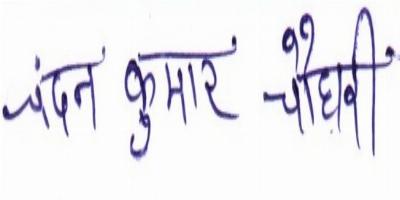 चंदन कुमार चौधरी